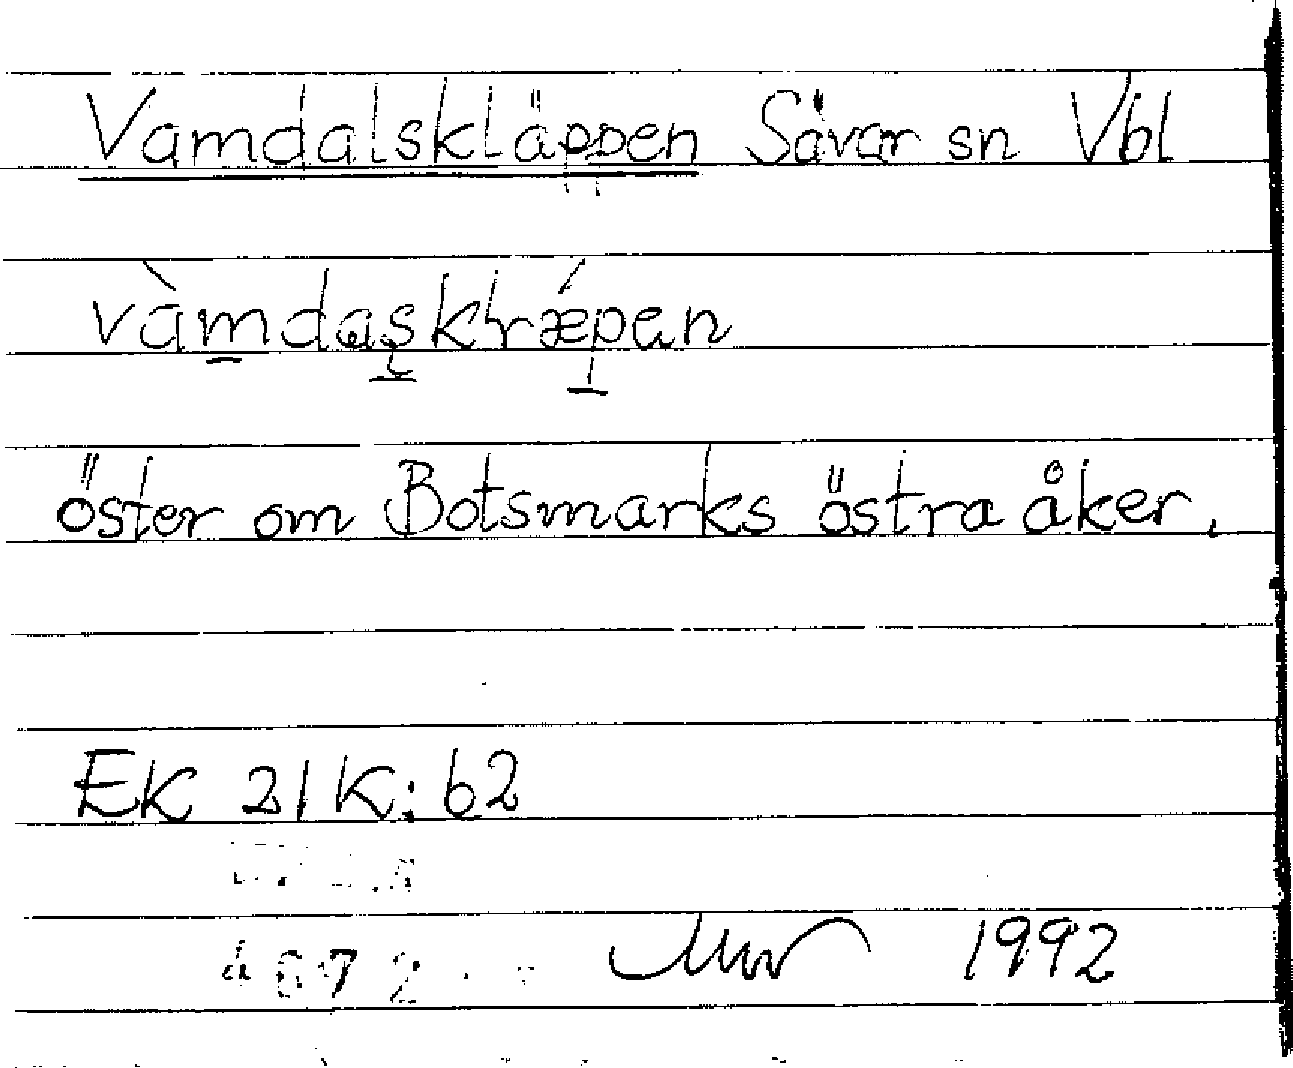 Vamdalskläppen Sävar sn Vbl
vàmdaskrǽpen
öster om Botsmarks östra åker.
EK 21K:62
1992